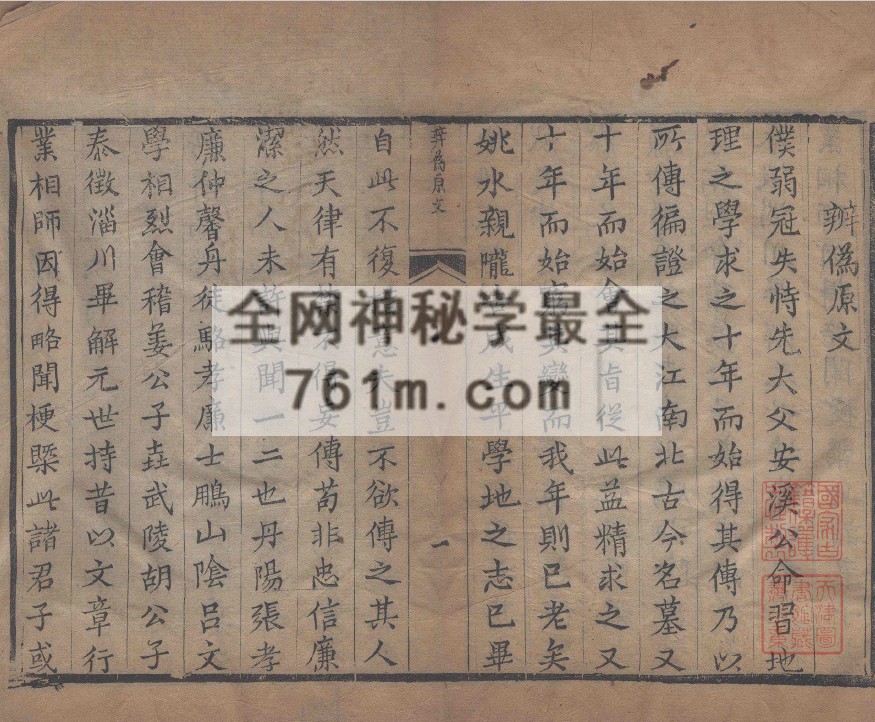 辨偽原文
僕弱冠失恃先大父安溪公命習地
理之學求之十年而始得其傳乃以
所傳徧證之大江南北古今名墓又
十年而始會其旨從此益精求之又
十年而始其變而我年則已老矣
姚水親隴成生平學地之志已畢
辨偽原文
一
自此不復意夫豈不欲傳之其人
然天律有不得妄傳苟非忠信廉
潔之人未許與聞一二也丹陽張孝
廉仲馨丹徒駱孝廉士鵬山陰呂文
學相烈會稽姜公子垚武陵胡公子
泰徵淄川畢解元世持昔以文章行
業相師因得略聞梗槩此諸君子或
全网神秘学最全
761m.com